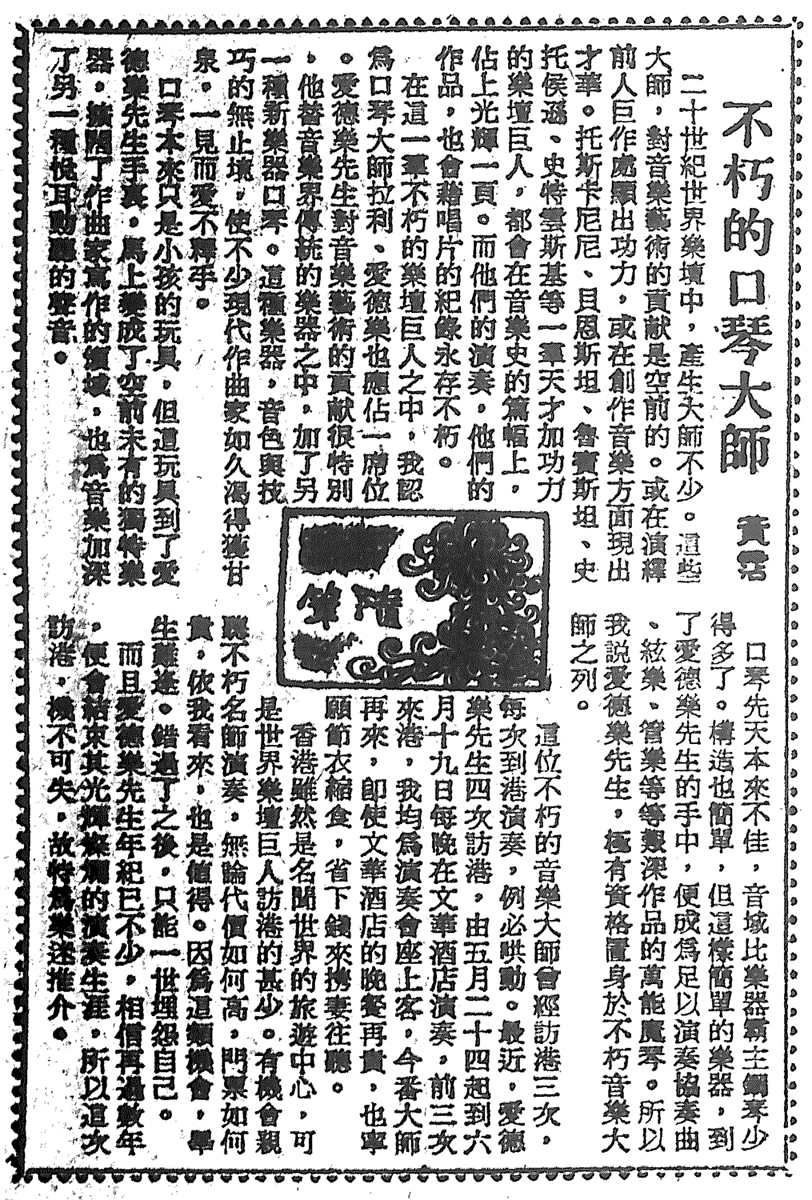 不朽的口琴大師
黃霑
二十世紀世界樂壇中，產生大師不少。這些
大師，對音樂藝術的貢献是空前的。或在演釋
前人巨作處顯出功力，或在創作音樂方面現出
才華。托斯卡尼尼、貝恩斯坦、魯賓斯坦、史
托侯遜、史特雲斯基等一羣天才加功力
的樂壇巨人，都會在音樂史的篇幅上，
佔上光輝一頁。而他們的演奏，他們的
作品，也會藉唱片的紀錄永存不朽。
在這一羣不朽的樂壇巨人之中，我認
為口琴大師拉利、愛德樂也應佔一席位
。愛德樂先生對音樂藝術的貢献很特別
，他替音樂界傳統的樂器之中，加了另
一種新樂器口琴。這種樂器，音色與技
巧的無止境，使不少現代作曲家如久渴得獲甘
泉，一見而愛不釋手。
口琴本來只是小孩的玩具，但這玩具到了愛
德樂先生手裏，馬上變成了空前未有的獨特樂
器，擴闊了作曲家寫作的領域，也為音樂加深
了另一種悅耳動聽的聲音。
隨筆
口琴先天本來不佳，音域比樂器霸主鋼琴少
得多了。構造也簡單，但這樣簡單的樂器，到
了愛德樂先生的手中，便成為足以演奏協奏曲
、絃樂、管樂等等艱深作品的萬能魔琴。所以
我説愛德樂先生，極有資格置身於不朽音樂大
師之列。
這位不朽的音樂大師曾經訪港三次，
每次到港演奏，例必哄動。最近，愛德
樂先生四次訪港，由五月二十四起到六
月十九日每晚在文華酒店演奏，前三次
來港，我均為演奏會座上客，今番大師
再來，即使文華酒店的晚餐再貴，也寧
願節衣縮食，省下錢來携妻往聽。
香港雖然是名聞世界的旅遊中心，可
是世界樂壇巨人訪港的甚少。有機會親
聽不朽名師演奏，無論代價如何高，門票如何
貴，依我看來，也是值得。因為這類機會，畢
生難逢。錯過了之後，只能一世埋怨自己。
而且愛德樂先生年紀已不少，相信再過數年
，便會結束其光輝燦爛的演奏生涯，所以這次
訪港，機不可失，故特為樂迷推介。